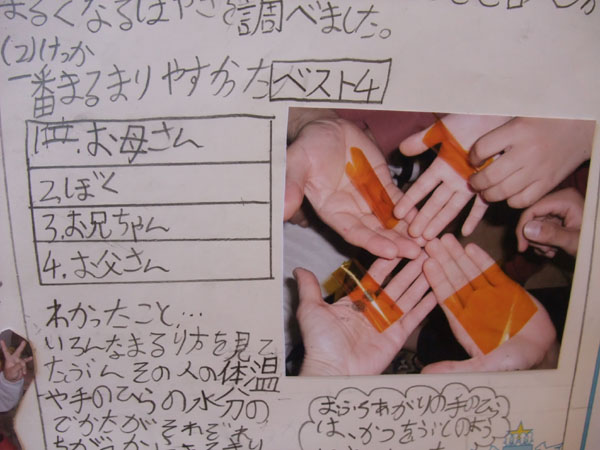 まるくなるはやさを調べました。
(2)けっか
一番まるまりやすかったベスト4
1位.お母さん
2.ぼく
3.お兄ちゃん
4.お父さん
わかったこと…
いろんなまるり方を見て
たぶんその人の体温
や手のひらの水分の
でかたがそれぞれ
おふろあがりの手のひら
は、かつをぶしのよう